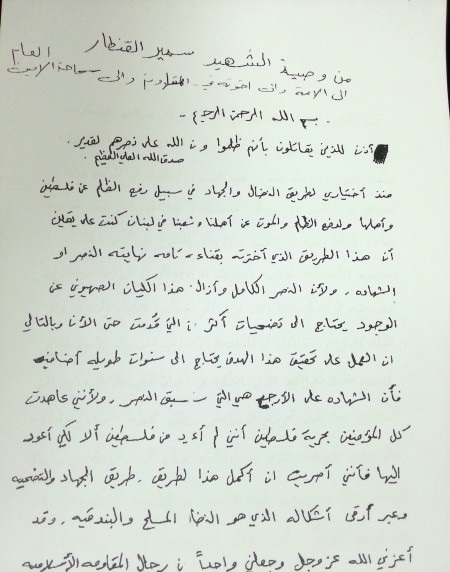 من وصية الشهيد سمير القنطار
الى الامة والى اخوته في المقاومه والى سماحة الامين العام
بسم الله الرحمن الرحيم -
أذن للذين يقاتلون بأنهم ظلموا وان الله على نصرهم لقدير.
صدق الله العلي العظيم
منذ أختياري لطريق النضال والجهاد في سبيل رفع الظلم عن فلسطين
وأهلها ولدفع الظلم والموت عن أهلنا وشعبنا في لبنان كنت على يقين
أن هذا الطريق الذي أخترته بقناعه تامه نهايته النصر او
الشهاده. ولأن النصر الكامل وأزالة هذا الكيان الصهيوني عن
الوجود يحتاج الى تضحيات أكثر من التي قدمت حتى الأن وبالتالي
ان العمل على تحقيق هذا الهدف يحتاج الى سنوات طويله أضافيه
فأن الشهاده على الأرجح هي التي ستسبق النصر. ولأنني عاهدت
كل المؤمنين بحرية فلسطين أنني لم أعد من فلسطين ألا لكي أعود
إليها فأنني أصريت ان أكمل هذا الطريق. طريق الجهاد والتضحيه
وعبر أرقى أشكاله الذي هو النضال المسلح والبندقيه. وقد
أعزني الله عز وجل وجعلني واحداً من رجال المقاومه الأسلاميه